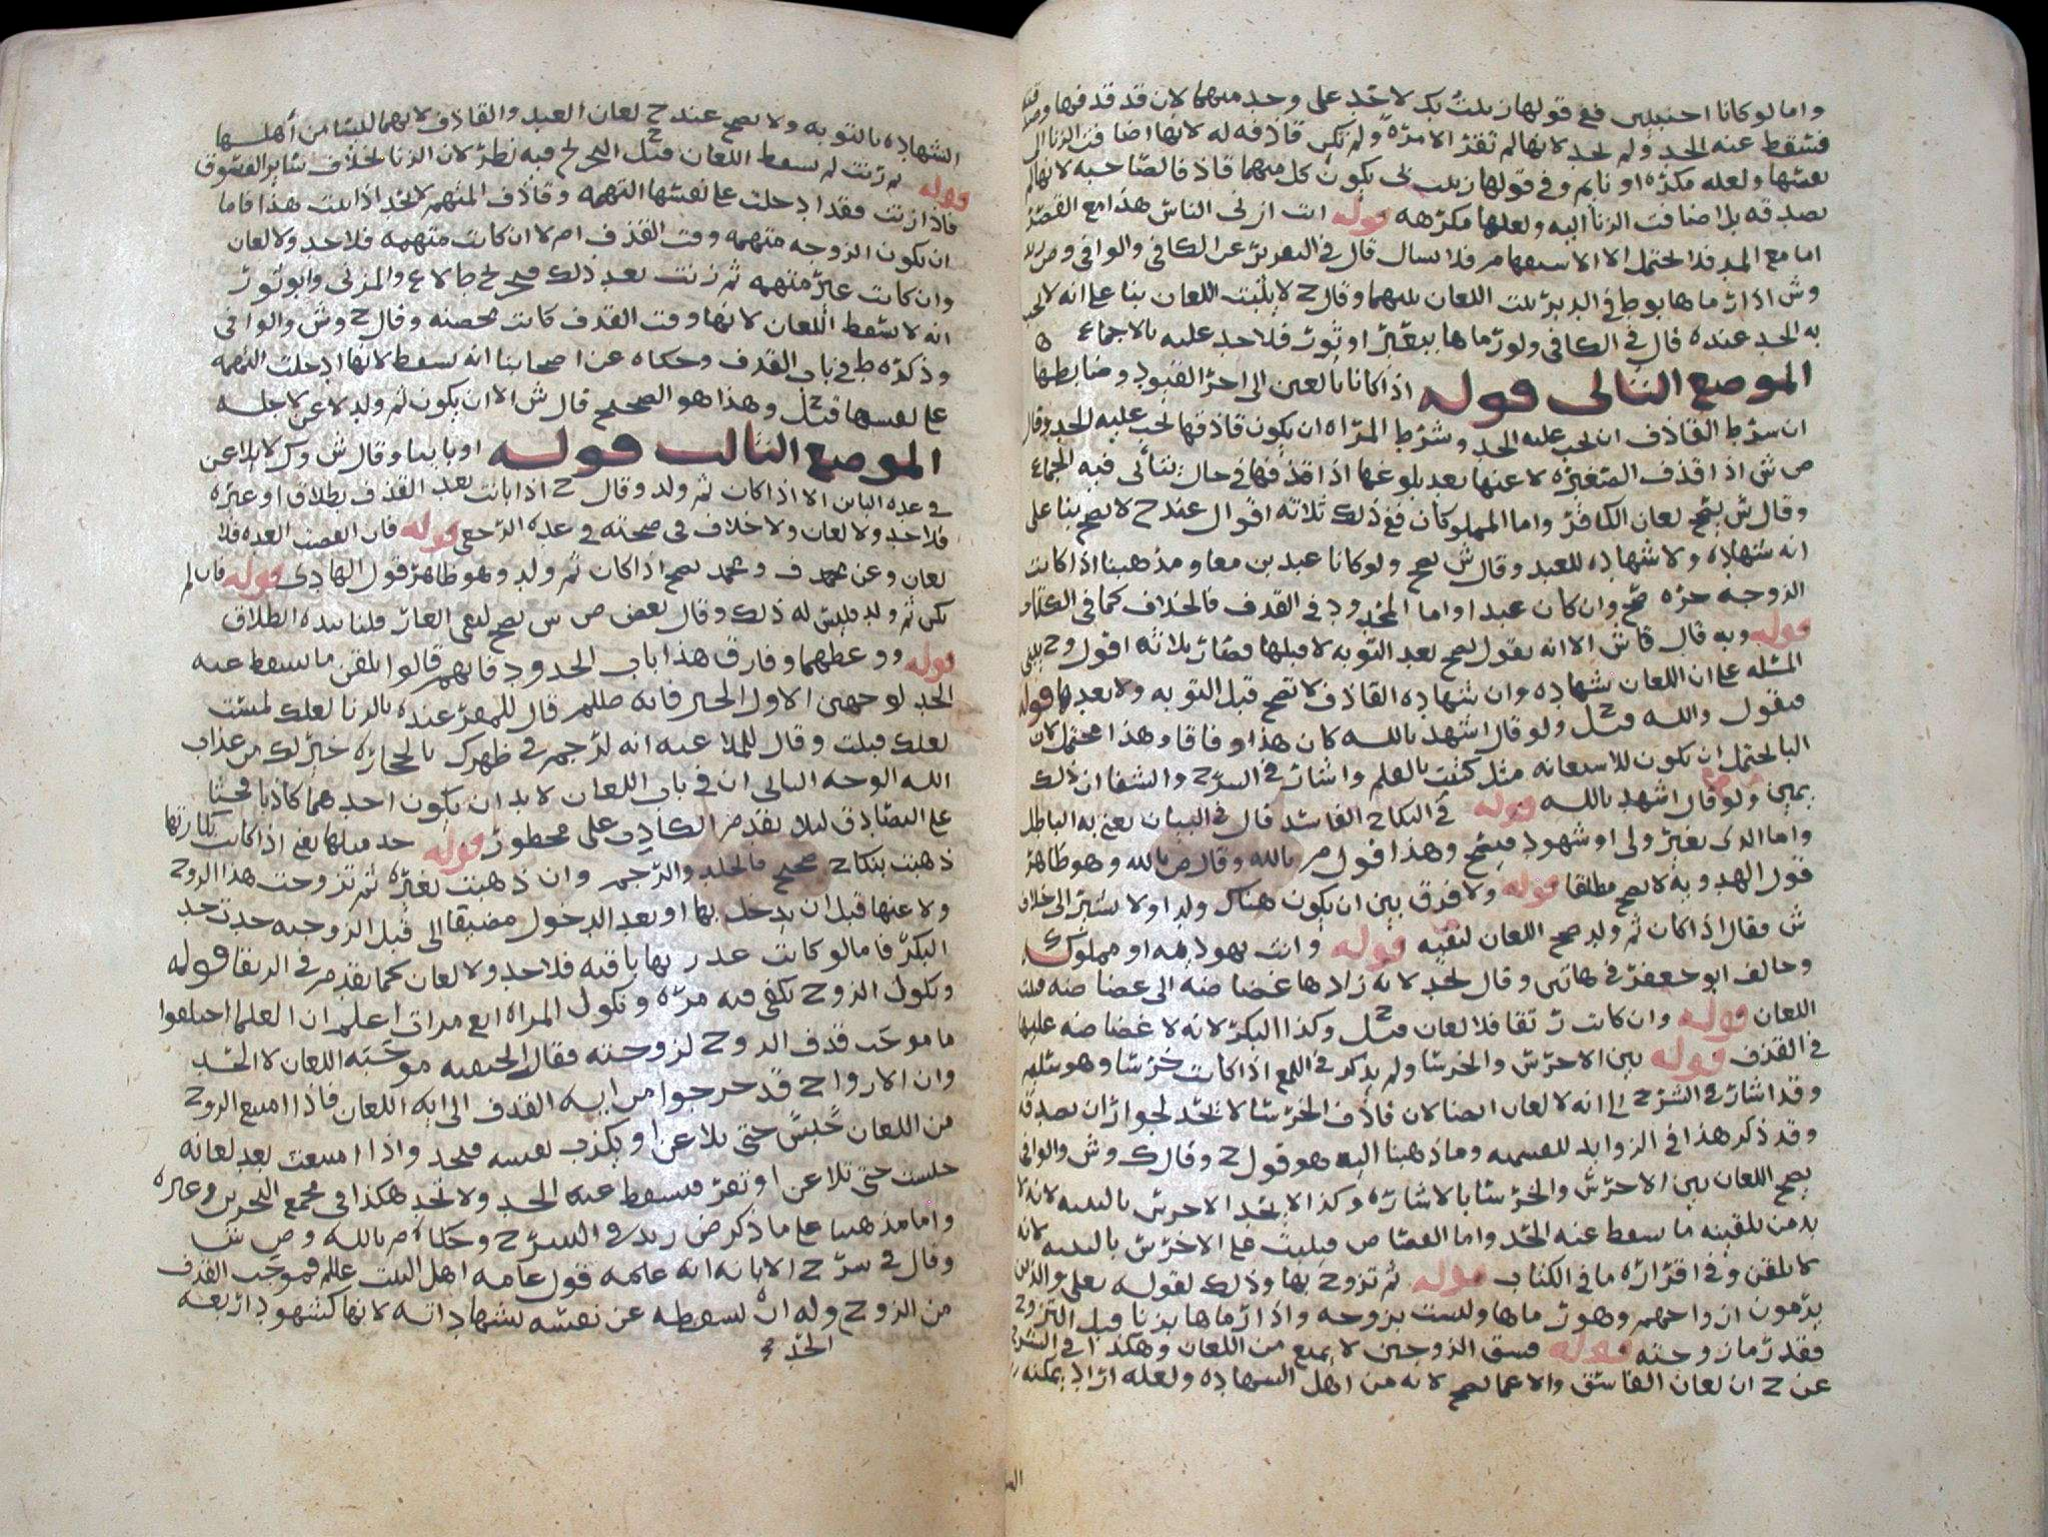 واما لو كانا اجنبيين فع قولها زنيت بك لا حد على وحد منهما لان قد قذفها
فسقط عنه الحد ولم تحد لانها لم تقر الا مرة ولم تكن قاذفه له لانها اضافت الزنا الى
نفسها ولعله مكره او نايم وفي قولها زنيت بي يكون كل منهما قاذفا لصاحبه لانها لم
تصدقه بل اضافت الزنا اليه ولعلها مكرهه قوله انت ازنى الناس هذا مع القصر
اما مع المد فلا يحتمل الا الاستفهام فلا يسال قال في التقرير عن الكافي والوافي وص
وش اذا رماها بوطء في الدبر ثبت اللعان بينهما وقال ح لا يثبت اللعان بنا على انه لا يجب
به الحد عنده قال في الكافي ولو رماها ببعير او بثور فلا حد عليه بالاجماع ه
الموضع الثاني قوله اذا كانا بالغين الى اخر القيود وضابطها
ان شرط القاذف ان يجب عليه الحد وشرط المراه ان يكون قاذفها يجب عليه الحد وقال
ص ش اذا قذف الصغيره لاعنها بعد بلوغها اذا قذفها في حال يتاتى فيه الجماع
وقال ش يصح لعان الكافر واما المملوكان فع ذلك ثلاثه اقوال عند ح لا يصح بنا على
انه شهاده ولا شهاده للعبد وقال ش يصح ولو كانا عبدين معا ومذهبنا اذا كانت
الزوجه حره صح وان كان عبدا واما المحدود في القذف فالخلاف كما في الكتاب
قوله وبه قال ق ش الا انه يقول يصح بعد التوبه لا قبلها فصار ثلاثه اقول وح يبني
المسئله على ان اللعان شهاده وان شهاده القاذف لا تصح قبل التوبه ولا بعدها قوله
فيقول والله قيل ح ولو قال اشهد بالله كان هذا وفاقا وهذا محتمل لان
البا يحتمل ان تكون للاستعانه مثل كتبت بالقلم واشار في الشرح والشفا ان ذلك
يمين ولو قال اشهد بالله قوله في النكاح الفاسد قال في البيان يعني به الباطل
واما الذي بغير ولي او شهود فيصح وهذا قول م بالله وقال ص بالله وهو ظاهر
قول الهدويه لا يصح مطلقا قوله ولا فرق بين ان يكون هناك ولد اولا يشير الى خلاف
ش فقال اذا كان ثم ولد صح اللعان لنفيه قوله وانت يهوديه او مملوك
وخالف ابو جعفر في هاتين وقال يحد لانه زادها غضاضه الى غضاضه قلنا
اللعان قوله وان كانت رتقا فلا لعان قيل ح وكذا البكر لانه لا غضاضه عليها
في القذف قوله بين الاخرس والخرسا ولم يذكر في اللمع اذا كانت خرسا وهو سليم
وقد اشار في الشرح الى انه لا لعان ايضا لان قاذف الخرسا لا يحد لجواز ان تصدقه
وقد ذكر هذا في الزوايد للقسميه وما ذهبنا اليه هو قول ح وقال ك وش والوافي
يصح اللعان بين الاخرس والخرسا بالاشاره وكذا لا يحد الاخرس بالبينه لانه لا
بد من تلقينه ما يسقط عنه الحد واما القصاص فيثبت على الاخرس بالبينه لانه
لا يلقن وفي اقراره ما في الكتاب قوله ثم تزوج بها وذلك لقوله تعلى والذين
يرمون ازواجهم وهو رماها وليست بزوجه واذا رماها بزنا قبل التزوج
فقد رما زوجته قوله فسق الزوجين لا يمنع من اللعان وهكذا في الشرح
عن ح ان لعان الفاسق والاعما يصح لانه من اهل الشهاده ولعله اراد يمكنه
الشهاده بالتوبه ولا يصح عند ح لعان العبد والقاذف لانهما ليسا من أهلها
قوله ثم زنت لم يسقط اللعان قيل ح فيه نظر لان الزنا بخلاف سائر الفسوق
فاذا زنت فقد ادخلت على نفسها التهمه وقاذف المتهم لا يحد اذا ثبت هذا فاما
ان تكون الزوجه متهمه وقت القذف ام لا ان كانت متهمه فلا حد ولا لعان
وان كانت غير متهمه ثم زنت بعد ذلك فخرج والمزني وابو ثور
انه لا يسقط اللعان لانها وقت القذف كانت محصنه وقال ح وش والوافي
وذكره ط في باب القذف وحكاه عن اصحابنا انه يسقط لانها ادخلت التهمه
على نفسها قيل ح وهذا هو الصحيح قال ش الا ان يكون ثم ولد لاعن لاجله
الموضع الثالث قوله او باينا وقال ش وك لا يلاعن
في عده الباين الا اذا كان ثم ولد وقال ح اذا بانت بعد القذف بطلاق او غيره
فلا حد ولا لعان ولا خلاف في صحته في عدة الرجعي قوله فان انقضت العده فلا
لعان وعن محمد ف ومحمد يصح اذا كان ثم ولد وهو ظاهر قول الهادي قوله فان لم
يكن ثم ولد فليس له ذلك وقال بعض ص ش يصح لنفي العار قلنا بيده الطلاق
قوله ووعظهما وفارق هذا باب الحدود فانهم قالوا يلقن ما يسقط عنه
الحد لوجهين الاول الخبر فانه صللم قال للمقر عنده بالزنا لعلك لمست
لعلك قبلت وقال للملاعنه انه لرجم في ظهرك بالحجاره خير لك من عذاب
الله الوجه الثاني ان في باب اللعان لابد ان يكون احدهما كاذبا فحثا
على التصادق ليلا يقدم الكاذب على محظور قوله حد مثلها يعني اذا كانت بكارتها
ذهبت بنكاح صحيح فالجلد والرجم وان ذهبت بغيره ثم تزوجت هذا الزوج
ولاعنها قبل ان يدخل بها او بعد الدخول مضيقا الى قبل الزوجيه حدت حد
البكر فاما لو كانت عذرتها باقيه فلا حد ولا لعان كما تقدم في الرتقا قوله
ونكول الزوج يكفي فيه مره ونكول المراه اربع مرات اعلم ان العلما اختلفوا
ما موجب قذف الزوج لزوجته فقال الحنفيه موجبه اللعان لا الحد
وان الازواج قد خرجوا من ايه القذف الى ايه اللعان فاذا امتنع الزوج
من اللعان حبس حتى يلاعن او يكذب نفسه فيحد واذا امتنعت بعد لعانه
حبست حتى تلاعن او تقر فيسقط عنه الحد ولا تحد هكذا في مجمع البحرين وغيره
واما مذهبنا على ما ذكر ض زيد في الشرح وحكاه م بالله وص ش
وقال في شرح الابانه انه عليه قول عامه اهل البيت علللم فموجب القذف
من الزوج وله ان يسقطه عن نفسه بشهاداته لانها كشهود اربعه
الحد